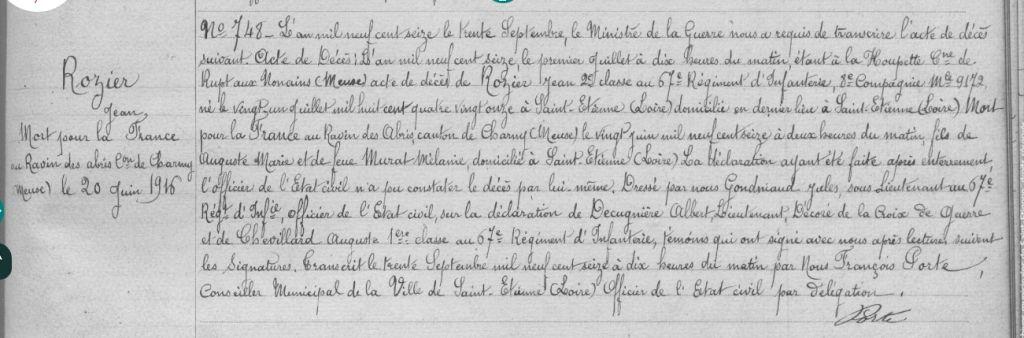 Rozier
Jean
Mort pour la France
au Ravin des abris Con de Charny
Meuse) le 20 Juin 1916
No 748 - L'an mil neuf cent seize le trente Septembre, le Ministre de la Guerre nous a requis de transcrire l'acte de décès
suivant Acte de Décès : L'an mil neuf cent seize le premier Juillet à dix heures du matin, étant à la Houpette Cne de
Rupt aux Nonains (Meuse) acte de décès de Rozier Jean 2e classe au 67e Régiment d'Infanterie, 8e Compagnie Mle 9172,
né le vingt un Juillet mil huit cent quatre vingt onze à Saint-Etienne (Loire) domicilié en dernier lieu à Saint-Etienne (Loire) Mort
pour la France au Ravin des Abris, canton de Charny (Meuse) le vingt Juin mil neuf cent seize à deux heures du matin, fils de
Auguste Marie et de feue Murat Mélanie, domicilié à Saint-Etienne (Loire) La déclaration ayant été faite après enterrement,
l'officier de l'Etat civil n'a pu constater le décès par lui-même. Dressé par nous Gondniaud Jules, sous Lieutenant au 67e
Régt d'Infie, officier de l'Etat civil, sur la déclaration de Decugnière Albert, Lieutenant, Décoré de la Croix de Guerre
et de Chevillard Auguste 1ère classe au 67e Régiment d'Infanterie, témoins qui ont signé avec nous après lecture, suivent
les Signatures. Transcrit le trente Septembre mil neuf cent seize à dix heures du matin par Nous François Porte,
Conseiller Municipal de la Ville de Saint-Etienne (Loire) Officier de l'Etat civil par délégation.
Porte